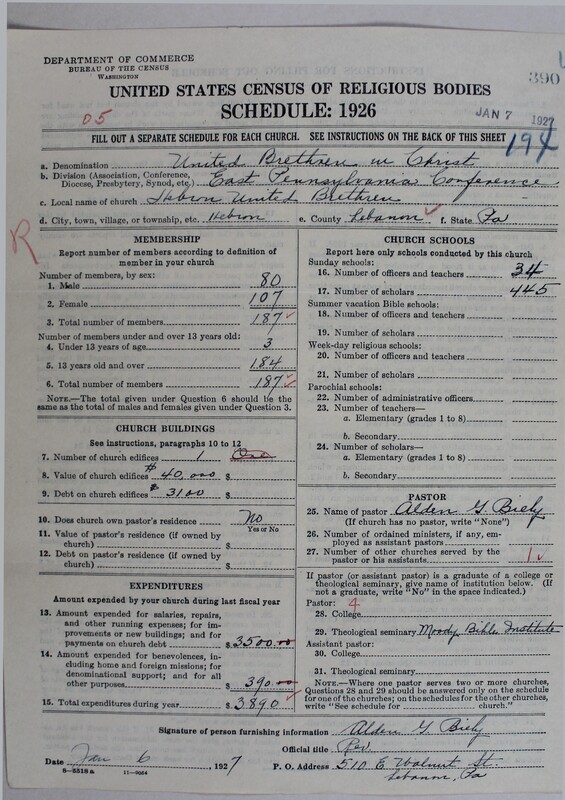 DEPARTMENT OF COMMERCE
BUREAU OF THE CENSUS
WASHINGTON
390
UNITED STATES CENSUS OF RELIGIOUS BODIES
SCHEDULE: 1926
D5
JAN 7 1927
194
FILL OUT A SEPARATE SCHEDULE FOR EACH CHURCH. SEE INSTRUCTIONS ON THE BACK OF THIS SHEET
a. Denomination United Brethren in Christ
b. Division (Association, Conference, Diocese, Presbytery, Synod, etc.) East Pennsylvania Conference
c. Local name of church Hebron United Brethren
d. City, town, village, or township, etc. Hebron e. County Lebanon f. State Pa
R
MEMBERSHIP
Report number of members according to definition of
member in your church
Number of members, by sex:
1. Male 80
2. Female 107
3. Total number of members 187
Number of members under and over 13 years old:
4. Under 13 years of age 3
5. 13 years old and over 184
6. Total number of members 187
NOTE.—The total given under Question 6 should be
same as the total of males and females given under Question 3.
CHURCH BUILDINGS
See instructions, paragraphs 10 to 12
7. Number of church edifices 1 One
8. Value of church edifices # 40,000 $
9. Debt on church edifices # 3100 $
10. Does church own pastor's residence No
Yes or No
11. Value of pastor's residence (if owned by
church) $
12. Debt on pastor's residence (if owned by
church) $
EXPENDITURES
Amount expended by your church during last fiscal year
13. Amount expended for salaries, repairs,
and other running expenses; for im-
provements or new buildings; and for
payments on church debt $ 3500.00
14. Amount expended for benevolences, in-
cluding home and foreign missions; for
denominational support; and for all
other purposes $ 390.00
15. Total expenditures during year $ 3890
CHURCH SCHOOLS
Report here only schools conducted by this church
Sunday schools:
16. Number of officers and teachers 34
17. Number of scholars 445
Summer vacation Bible schools:
18. Number of officers and teachers
19. Number of scholars
Week-day religious schools:
20. Number of officers and teachers
21. Number of scholars
Parochial schools:
22. Number of administrative officers
23. Number of teachers—
a. Elementary (grades 1 to 8)
b. Secondary
24. Number of scholars—
a. Elementary (grades 1 to 8)
b. Secondary
PASTOR
25. Name of pastor Alden G. Biely
(If church has no pastor, write "None")
26. Number of ordained ministers, if any, em-
ployed as assistant pastors
27. Number of other churches served by the
pastor or his assistants 1
If pastor (or assistant pastor) is a graduate of a college or
theological seminary, give name of institution below. (If
not a graduate, write "No" in the space indicated.)
Pastor: 4
28. College
29. Theological seminary Moody Bible Institute
Assistant pastor:
30. College
31. Theological seminary
NOTE.—Where one pastor serves two or more churches,
Questions 28 and 29 should be answered only on the schedule
for one of the churches; on the schedules for the other churches,
write "See schedule for church."
Signature of person furnishing information Alden G. Biely
Official title Rev
Date Jan 6, 1927 P. O. Address 510 E Walnut St.
Lebanon, Pa
8-5518 a 11-9024